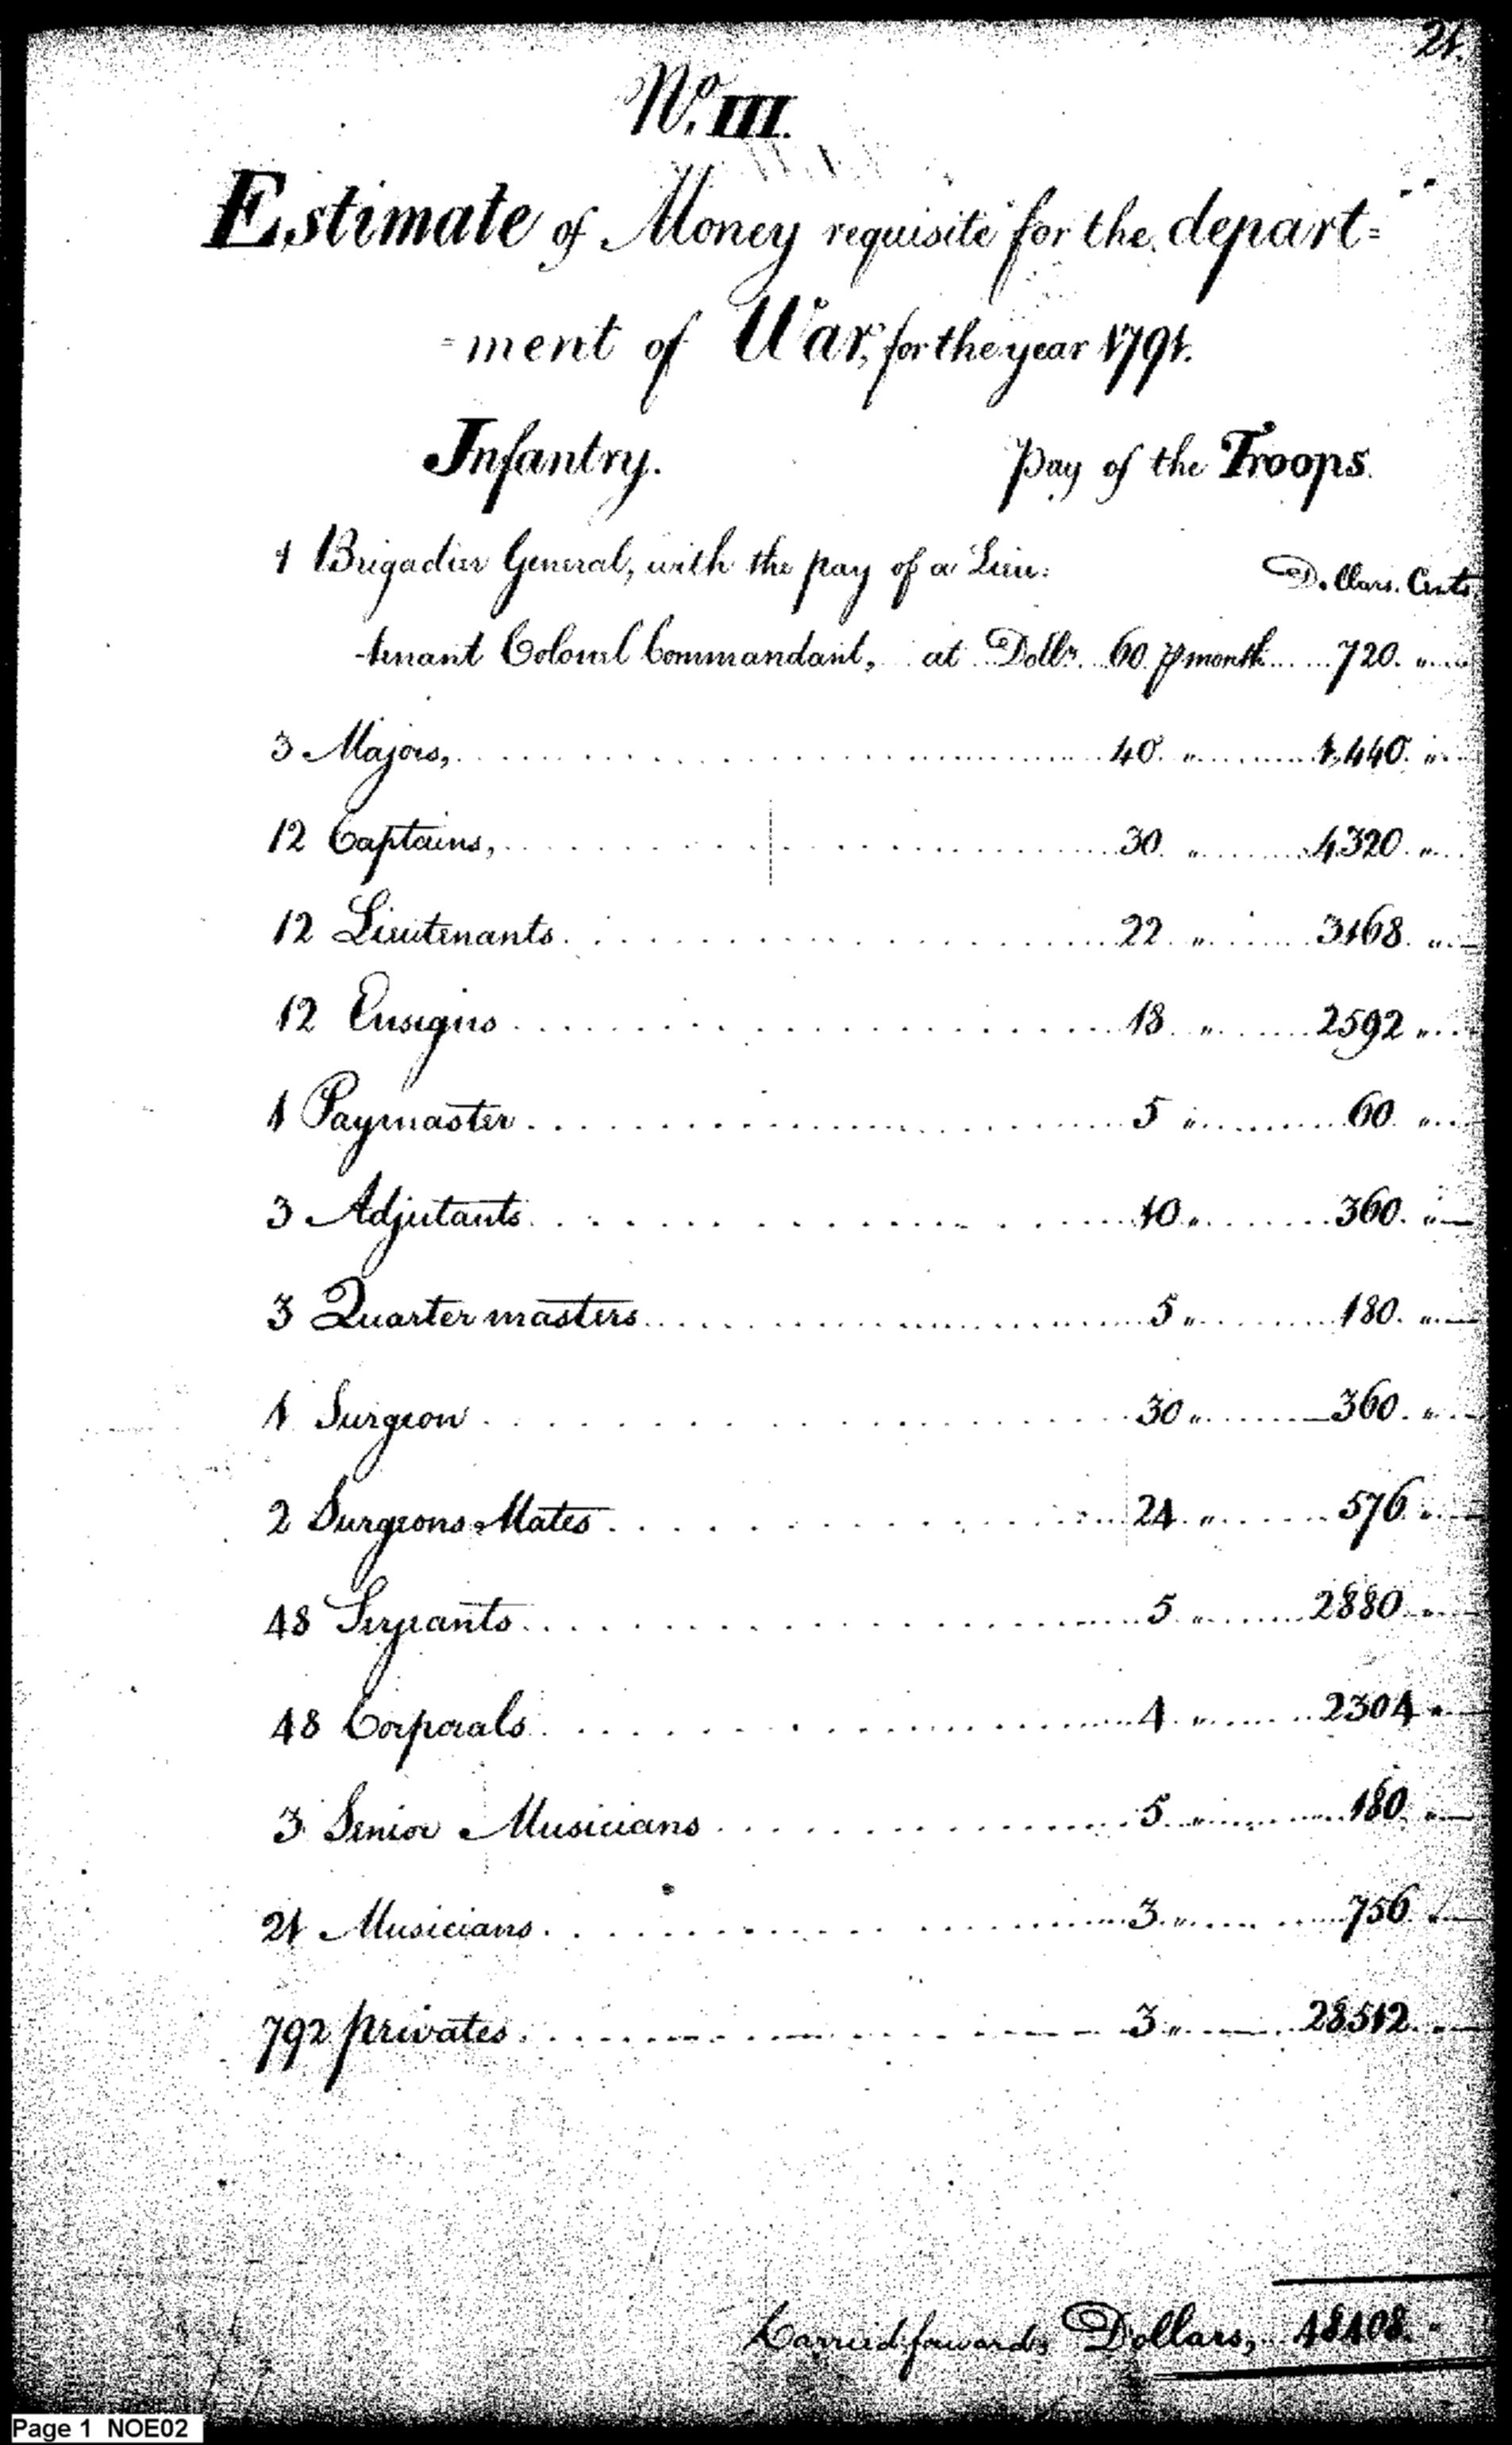 21.
No. III.
Estimate of Money requisite for the depart=
=ment of War, for the year 1791.
Infantry. Pay of the Troops.
1 Brigadier General, with the pay of a Lieu: Dollars. Cents
-tenant Colonel Commandant, at Dollrs. 60 ⅌ month 720. "
3 Majors, 40 " 1,440. "
12 Captains, 30. " 4320. "
12 Lieutenants 22 " 3168. "
12 Ensigns 18 " 2592 "
1 Paymaster 5 " 60. "
3 Adjutants 10 " 360. "
3 Quarter masters 5 " 180. "
1 Surgeon 30 " 360. "
2 Surgeons Mates 24 " 576 "
48 Serjeants 5 " 2880 "
48 Corporals 4 " 2304 "
3 Senior Musicians 5 " 180 "
21 Musicians 3 " 756 "
792 privates 3 " 28512 "
Carried forward, Dollars, 48408.
Page 1 NOE02